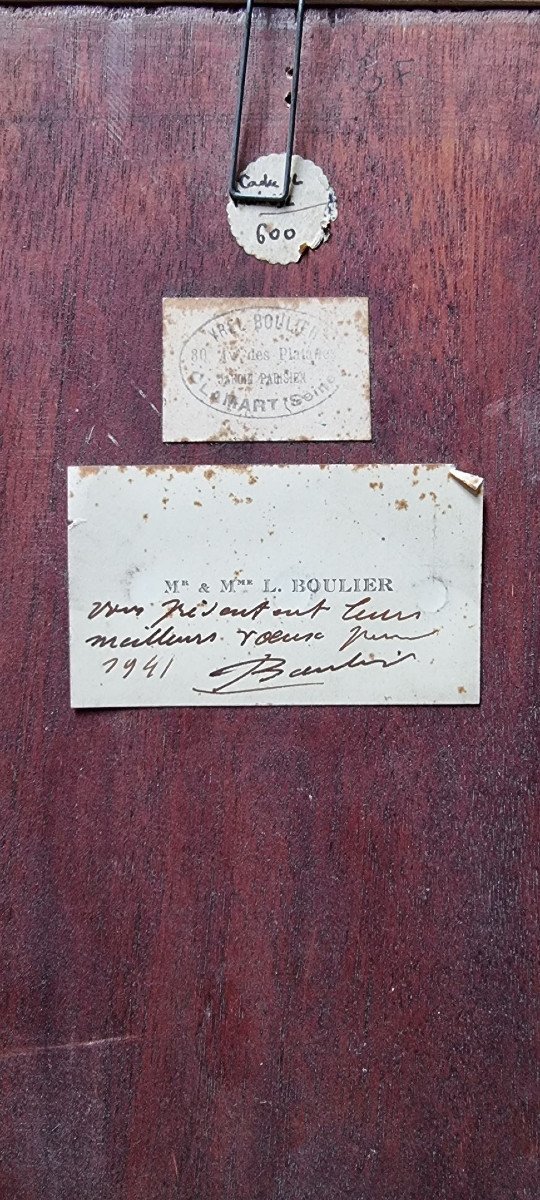 600
YREL BOULIER
80, des Platanes
PARISIEN
CLAMART (Seine)
Mʳ & Mᵐᵉ L. BOULIER
vous présentent leurs
meilleurs voeux pour
1941 Boulier